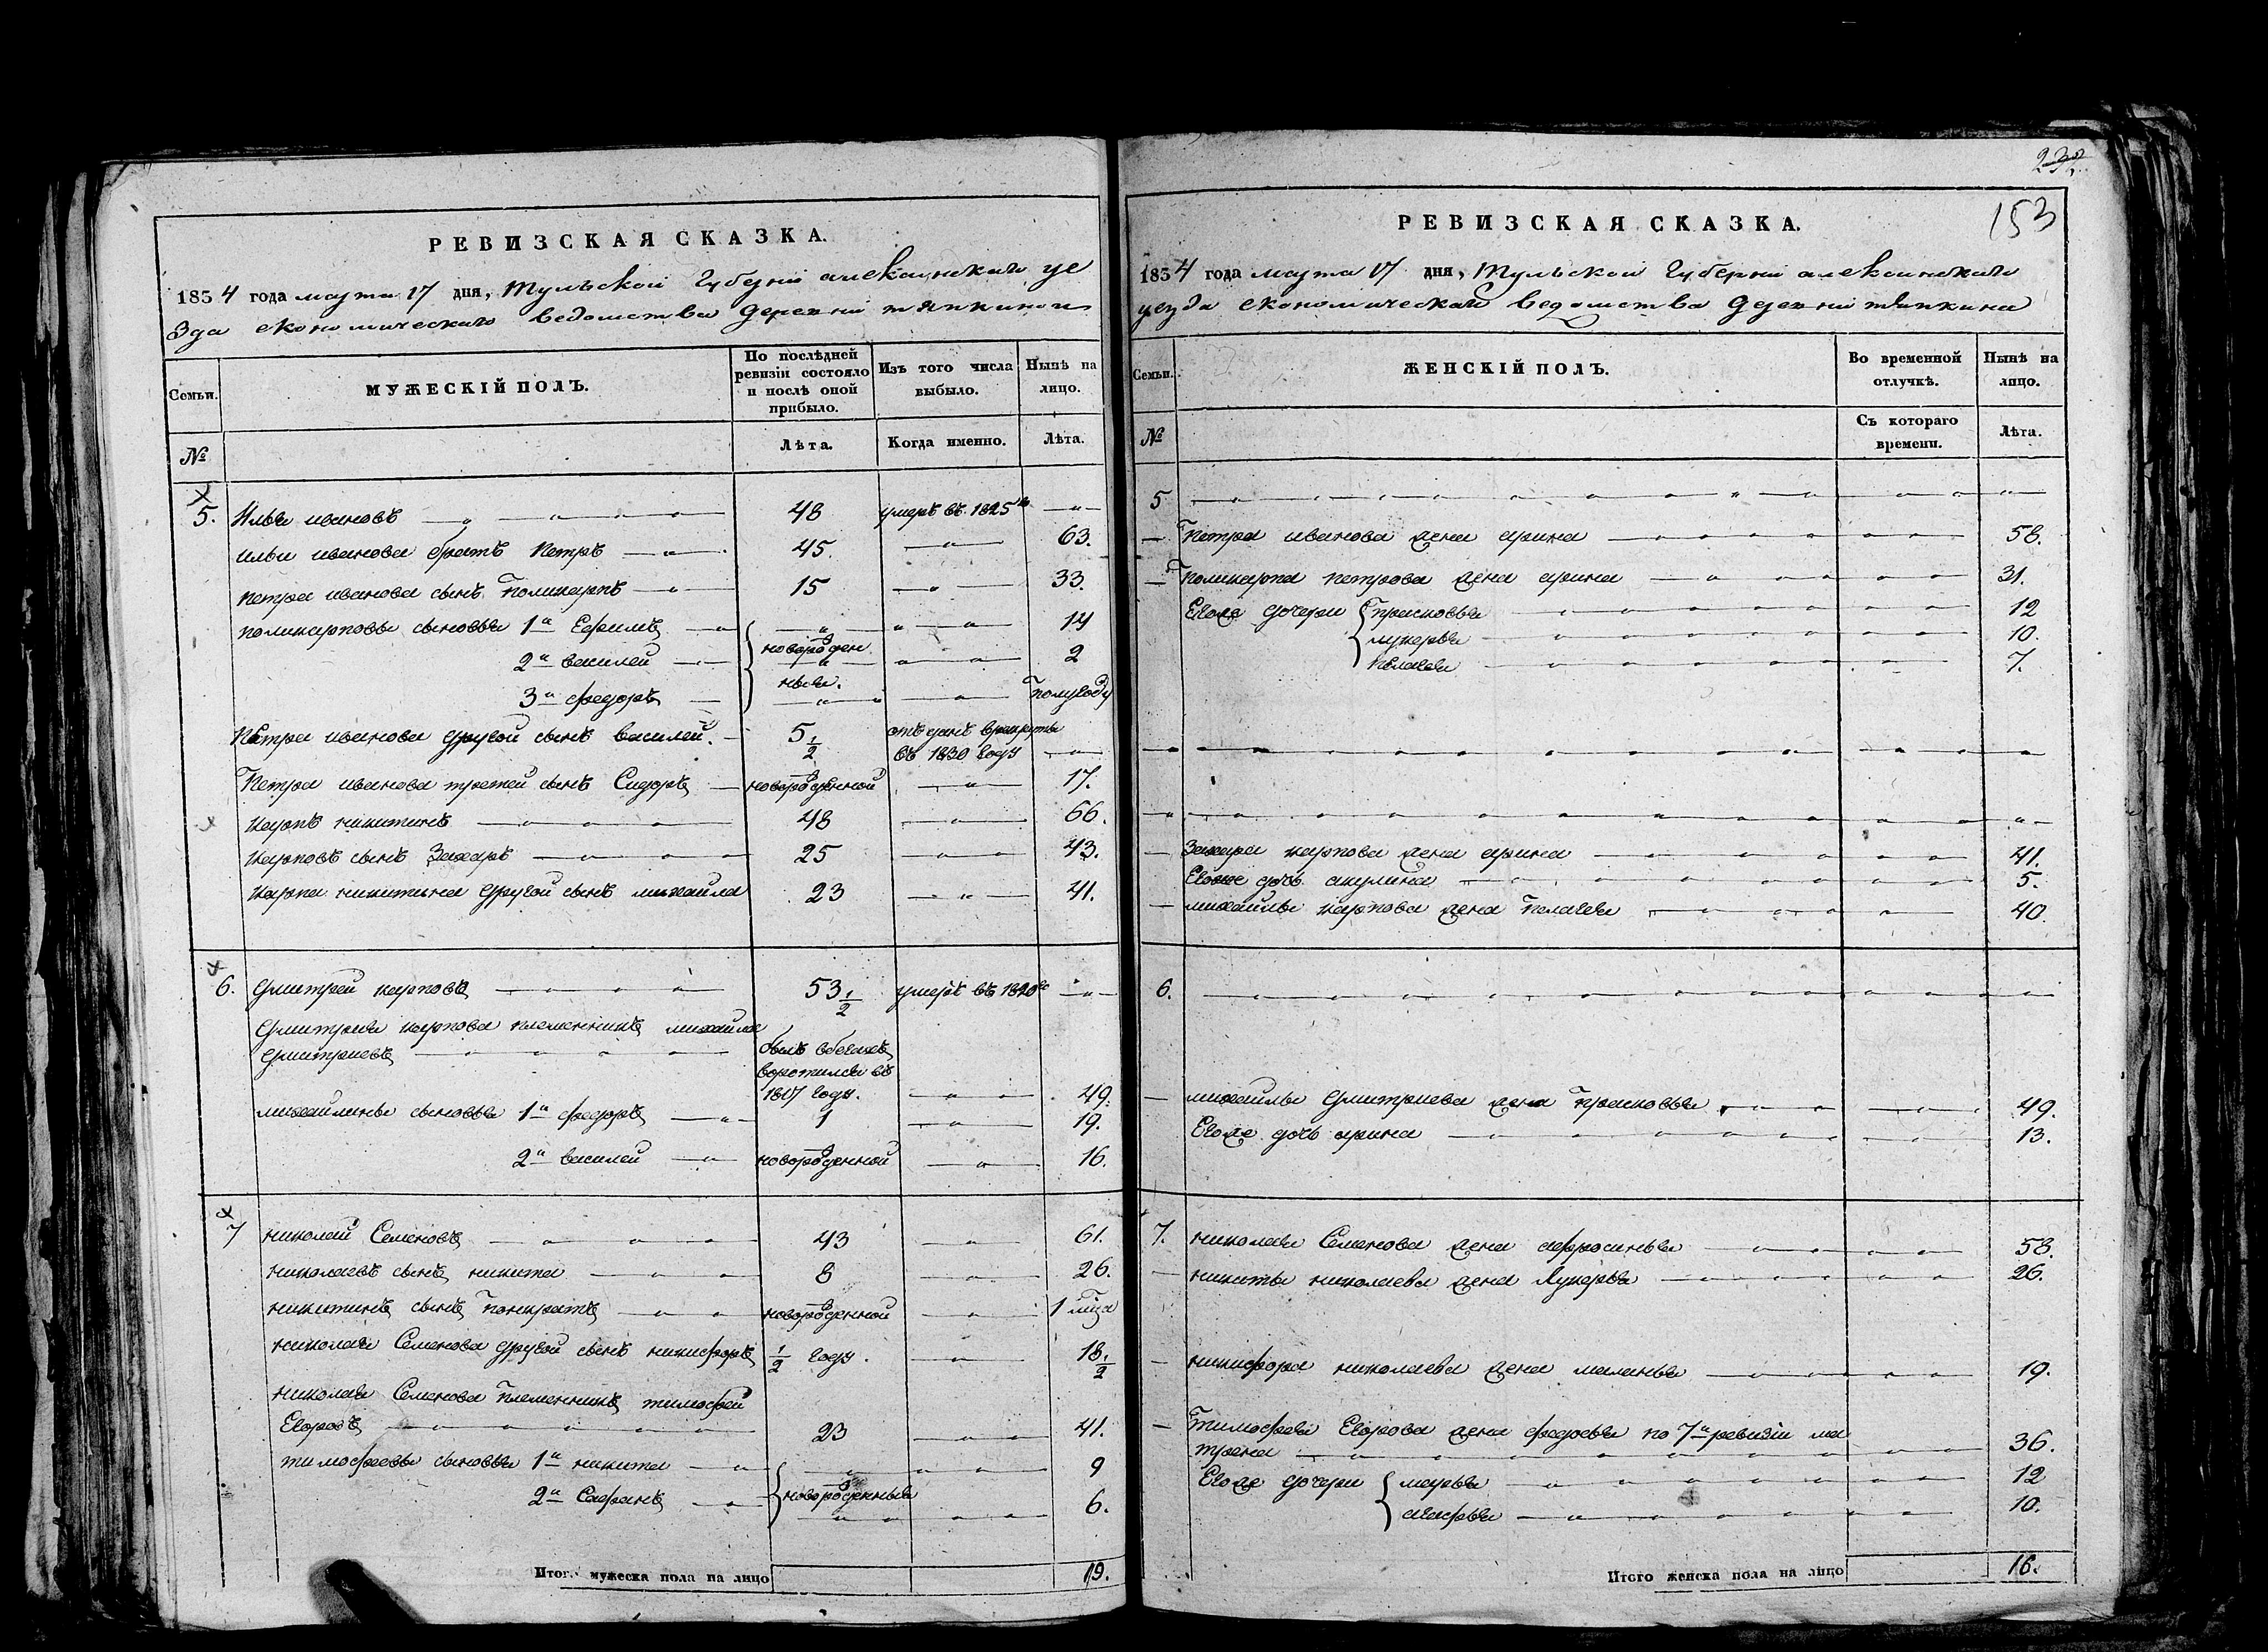 РЕВИЗСКАЯ СКАЗКА.
1834 года марта 17 дня, Тульской Губерніи алексинскаго уе
зда економическаго ведомства деревни тяпкиной
Семьи.
МУЖЕСКІЙ ПОЛЪ.
По послѣдней ревизіи состояло и послѣ оной прибыло.
Изъ того числа выбыло.
Нынѣ на лицо.
№
Лѣта.
Когда именно.
Лѣта.
5. Илья ивановъ 48 умеръ въ 1825
ильи иванова братъ Петръ 45. 63.
петра иванова сынъ Поликарпъ 15 33.
поликарповы сыновья 1й Ефимъ 14
2й василей новорожден 2
ныя.
3й федоръ полугоду
Петра иванова другой сынъ василей. 5 1/2 отданъ врекруты
въ 1830 году
Петра иванова третей сынъ Сидоръ новорожденной 17.
карпъ никитинъ 48 66.
карповъ сынъ Захаръ 25 43.
карпа никитина другой сынъ михайла 23 41.
6. дмитрей карповъ 53 1/2 умеръ въ 1820
дмитрия карпова племянникъ михайла
дмитриевъ былъ вбегахъ
воротился въ
1817 году. 49.
михайлины сыновья 1й федоръ 1 19.
2й василей новорожденной 16.
7 николай Семеновъ 43 61.
николаевъ сынъ никита 8 26.
никитинъ сынъ Понкратъ новорожденной 1
николая Семенова другой сынъ никифоръ 1/2 году. 18 1/2
николая Семенова Племянникъ тимофей
Егоровъ 23 41.
тимофеевы сыновья 1й никита 9
новорожденныя
2й Сафонъ 6.
Итого мужеска пола на лицо 19.
232
153
РЕВИЗСКАЯ СКАЗКА.
1834 года марта 17 дня, Тульской Губерніи алексинскаго
уезда економическаго ведомства деревни тяпкина
Семьи.
ЖЕНСКІЙ ПОЛЪ.
Во временной отлучкѣ.
Нынѣ на лицо.
№
Съ котораго времени.
Лѣта.
5
Петра иванова жена арина 58.
Поликарпа петрова жена арина 31.
Егоже дочери Прасковья 12
лукерья 10.
пелагея 7.
Захара карпова жена арина 41.
Егоже дочь акулина 5.
михайлы карпова жена Пелагея 40.
6.
михайлы дмитриева жена Прасковья 49.
Егоже дочь арина 13.
7. николая Семенова жена афросинья 58.
никиты николаева жена Лукерья 26.
никифора николаева жена маланья 19.
Тимофея Егорова жена федосья по 7й ревизіи ма
трена 36.
Егоже дочери марья 12
агафья 10.
Итого женска пола на лицо 16.